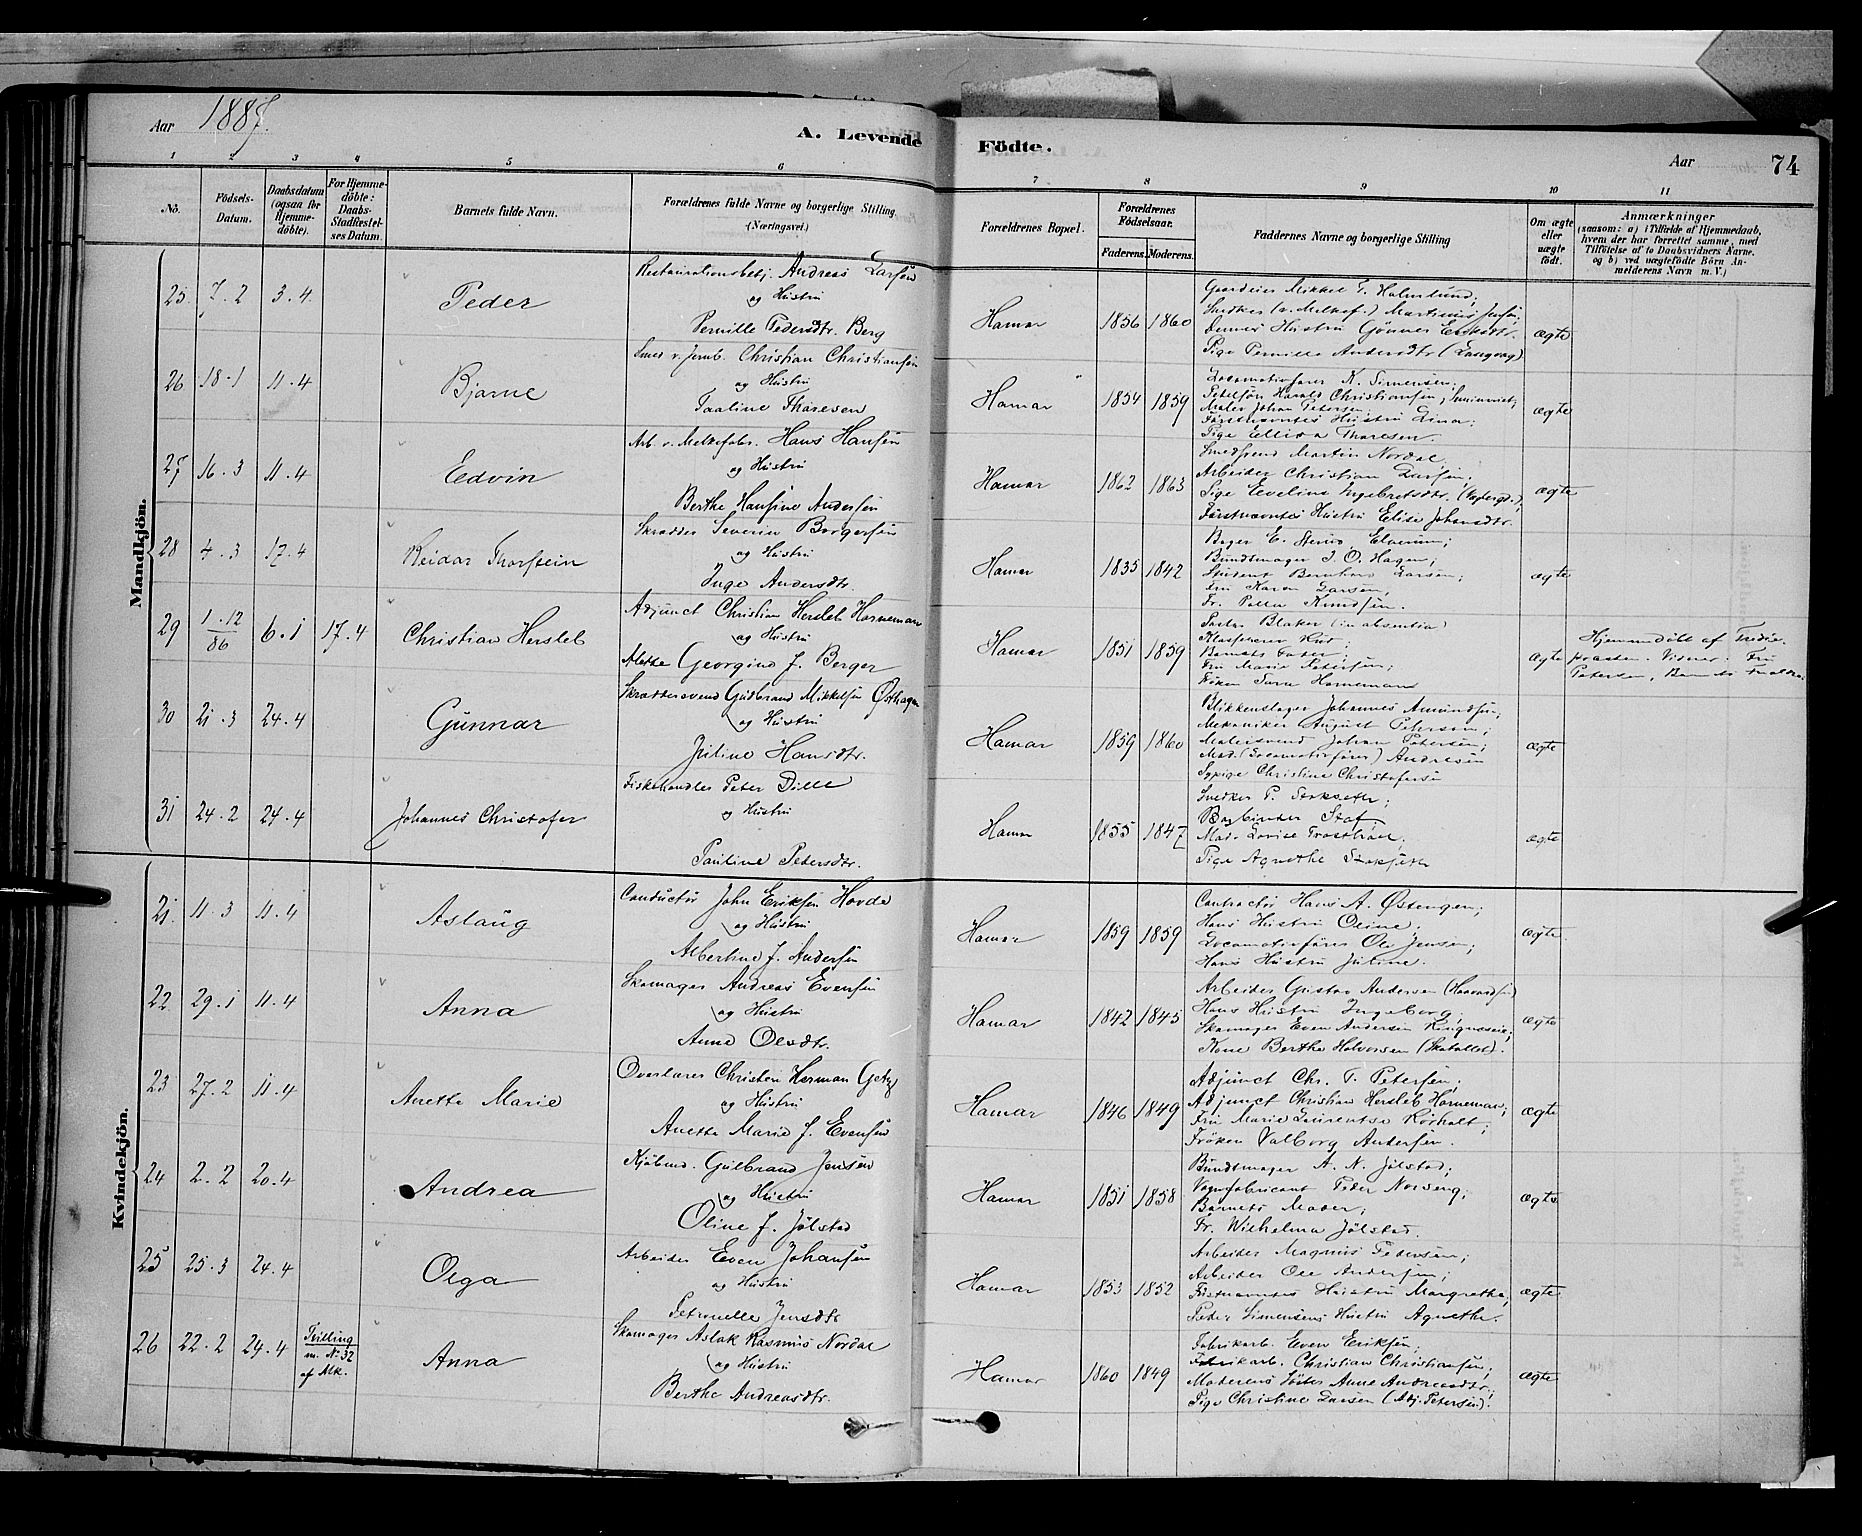 Aar 1887.
A. Levende Födte.
Aar
74
1 2 3 4 5 6 7 8 9 10 11
No.
Födsels-Datum.
Daabsdatum (ogsaa for Hjemme-döbte).
For Hjemme-döbte: Daabs-Stadfæstel-ses Datum.
Barnets fulde Navn.
Forældrenes fulde Navne og borgerlige Stilling (Næringsvei.)
Forældrenes Bopæl.
Forældrenes Födselsaar.
Faderens. Moderens.
Faddernes Navne og borgerlige Stilling
Om ægte eller uægte født.
Anmærkninger
(saasom: a) i Tilfælde af Hjemmedaab,
hvem der har forrettet samme, med
Tilföielse af to Daabsvidners Navne.
og b) ved uægtefödte Börn An-
melderens Navn m. V.)
Mandkjön.
25 7.2 3.4
Peder
Restaurationsbetj. Andreas Larsen
og Hustru
Pernille Pedersdtr. Berg
Hamar
1856 1860
Gaardeier Mikkel T. Holmlund;
Snedker (v. Melkef.) Martinus Jensen;
Dennes Hustru
Pige Pernille Andersdtr (Langvag)
ægte
26 18.1 11.4
Bjarne
Smed v. Jernb. Christian Christiansen
og Hustru
Paaline Tharesen
Hamar
1854 1859
Locomotivfører K. Simensen;
Harald Christiansen,
Maler Johan Petersen
Førstnævntes Hustru Lina;
Pige Ellisa Tharesen.
ægte
27 16.3 11.4
Edvin
Arb. v. Melkefabr. Hans Hansen
og Hustru
Berthe Hansine Andersen
Hamar
1862 1863
Smedsvend Martin Nordal
Arbeider Christian Larsen;
Pige Eveline Ingebretsdtr.
Førstnævntes Hustru Elise Johansdtr.
ægte
28 4.3 17.4
Reidar Thorstein
Skrædder Severin Borgersen
og Hustru
Inge Andersdtr.
Hamar
1835 1842
Bager E. Elverum;
Bundtmager J. O. Hagen;
Student Bernhard Larsen;
Fru Karen Larsen,
Fr. Petra Knudsen.
ægte
29 1.12/86 6.1 17.4
Christian Hersleb
Adjunct Christian Hersleb Horneman
og Hustru
Alette Georgine f. Berger
Hamar
1851 1859
Blaker (in absentia)
Barnets Fader;
Fru Marie Petersen;
Frøken Sara Hornemann
ægte
Hjemmedøbt af Tredie-
præsten. Vidner: Fru
Petersen, Barnets Forældre.
30 21.3 24.4
Gunnar
Skræddersvend Gudbrand Mikkelsen Østhagen
og Hustru
Juline Hansdtr.
Hamar
1859 1860
Blikkenslager Johannes Amundsen;
Mekaniker August Petersen;
Malersvend Johan Petersen;
Mad. (Locomotivfører) Andresen
Sypige Christine Christofersen
ægte
31 24.2 24.4
Johannes Christofer
Fiskehandler Peter Dille
og Hustru
Pauline Petersdtr.
Hamar
1855 1847
Snedker P.
Bogbinder Staf;
Mad. Lovise
Pige Agnethe
ægte
Kvindekjön.
21. 11.3 11.4
Aslaug
Conductør John Eriksen Hovde
og Hustru
Albertine f. Andersen
Hamar
1859 1859
Contractør Hans A. Østengen;
Hans Hustru Oline;
Locomotivfører Ole Jensen;
Hans Hustru Juline.
ægte
22. 29.1 11.4
Anna
Skomager Andreas Evensen
og Hustru
Anne Olsdtr.
Hamar
1842 1845
Arbeider Gustav Andersen (Haavardsen)
Hans Hustru Ingeborg,
Skomager Even Andersen
Kone Berthe Halvorsen
ægte
23 27.2 11.4
Anette Marie
Overlærer Christen Herman Getz
og Hustru
Anette Marie f. Evensen
Hamar
1846 1849
Adjunct Chr. T. Petersen;
Adjunct Christian Hersleb Horneman;
Fru Marie Laurentse Rørholt;
Frøken Valborg Andersen.
ægte
24 2.2 20.4
Andrea
Kjøbmd. Gulbrand Jensen
og Hustru
Oline f. Jølstad
Hamar
1851 1858
Bundtmager A. N. Jølstad;
Vognfabricant Peder Norseng;
Barnets Moder;
Fr. Wilhelmina Jølstad.
ægte
25 25.3 24.4
Olga
Arbeider Even Johansen
og Hustru
Petronelle Jensdtr
Hamar
1853 1852
Arbeider Magnus Pedersen;
Arbeider Ole Andersen;
Førstnævntes Hustru Margrethe,
Peder Simensens Hustru Agnethe.
ægte
26 22.2 24.4
Tvilling
m. No 32
af Mk.
Anna
Skomager Aslak Rasmus Nordal
og Hustru
Berthe Andreasdtr.
Hamar
1860 1849
Fabrikarb. Even Eriksen;
Fabrikarb. Christian Christiansen;
Moderens Søster Anne Andreasdtr;
Pige Christine Larsen (Adj. Petersen).
ægte